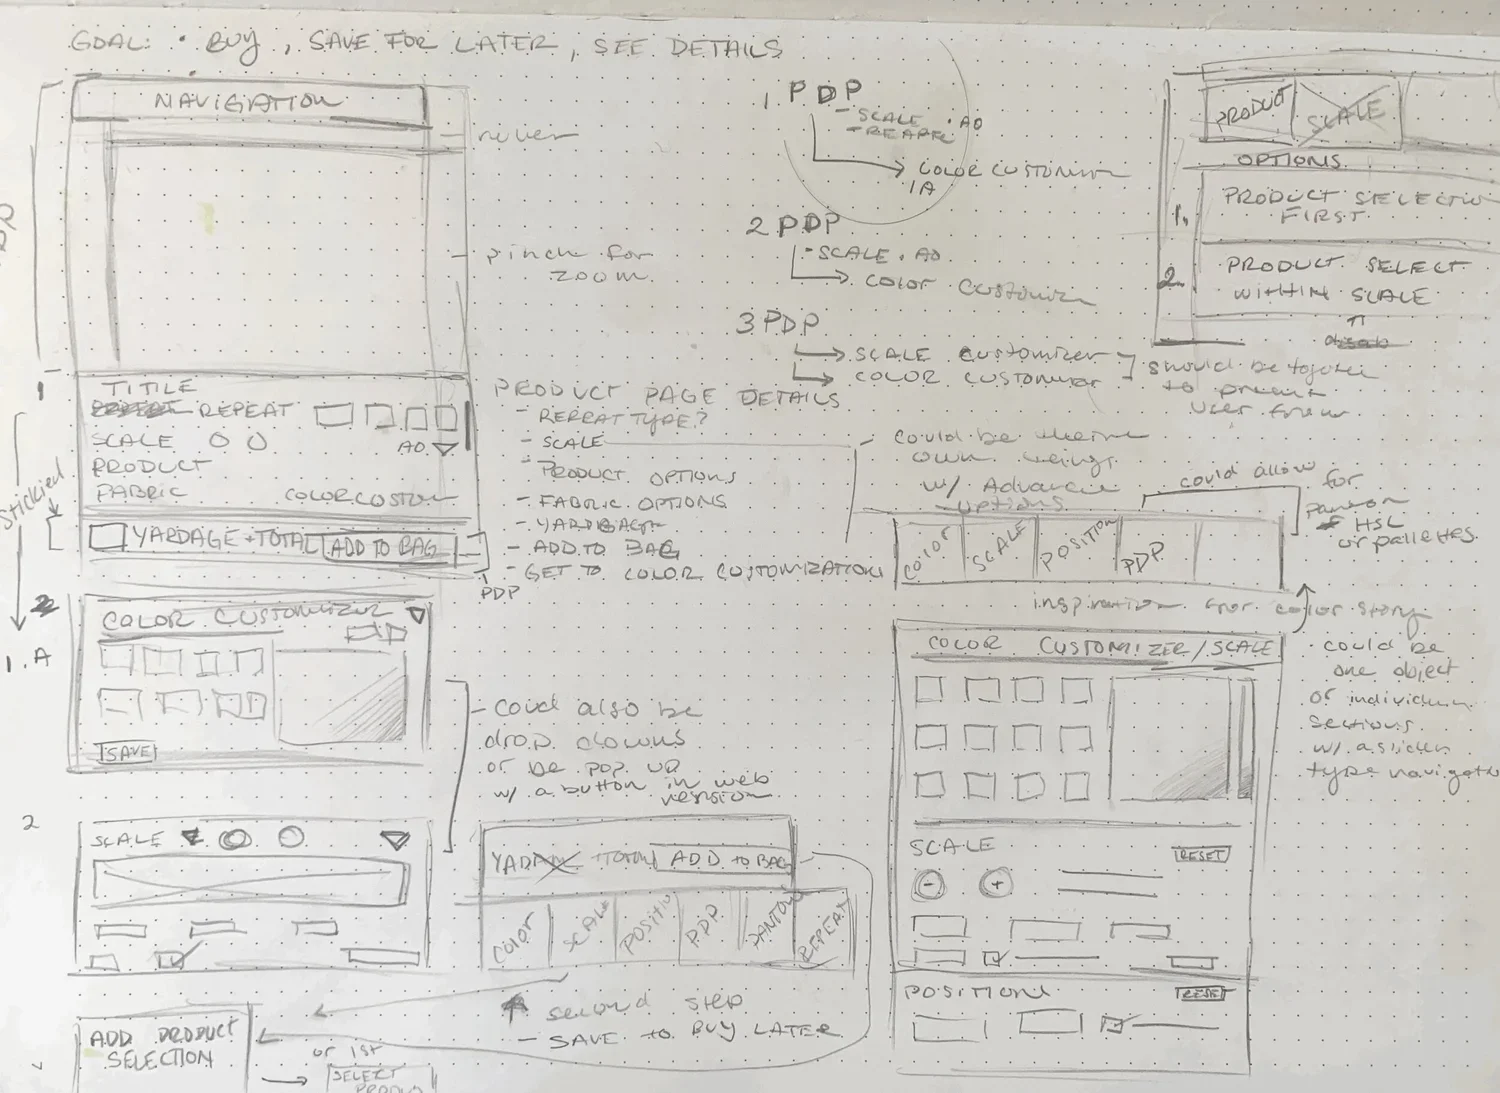 GOAL: • BUY, SAVE FOR LATER, SEE DETAILS
NAVIGATION
pinch for
zoom
TITLE
REPEAT
SCALE
AO
PRODUCT
FABRIC
COLOR CUSTOM
Stickied
YARDAGE + TOTAL ADD TO BAG
PDP
PRODUCT PAGE DETAILS
- REPEAT TYPE?
- SCALE
- PRODUCT OPTIONS
- FABRIC OPTIONS
- YARDAGE
- ADD TO BAG
- GET TO COLOR CUSTOMIZATION
1 PDP
- SCALE • AO
- REPEAT
COLOR CUSTOMIZER
1A
2 PDP
- SCALE • AO
COLOR CUSTOMIZER
3 PDP
SCALE CUSTOMIZER
COLOR CUSTOMIZER
should be together
to prevent
user
PRODUCT
SCALE
OPTIONS
1. PRODUCT SELECTION
FIRST
2. PRODUCT SELECT
WITHIN SCALE
- could be
own
w/ Advance
options
could allow
for
HSL
or palettes
COLOR
SCALE
POSITION
PDP
inspiration for color story
1
2
1.A
COLOR CUSTOMIZER
SAVE
- could also be
drop downs
or be pop up
w/ a button in web
version
COLOR CUSTOMIZER / SCALE
• could be
one object
or individual
sections
w/ a slider
type navigation
SCALE
RESET
- +
POSITION
RESET
2
SCALE
TOTAL ADD TO BAG
COLOR
SCALE
POSITION
PDP
PANTONE
REPEAT
second step
- SAVE TO BUY LATER
ADD PRODUCT
SELECTION
or 1st
SELECT